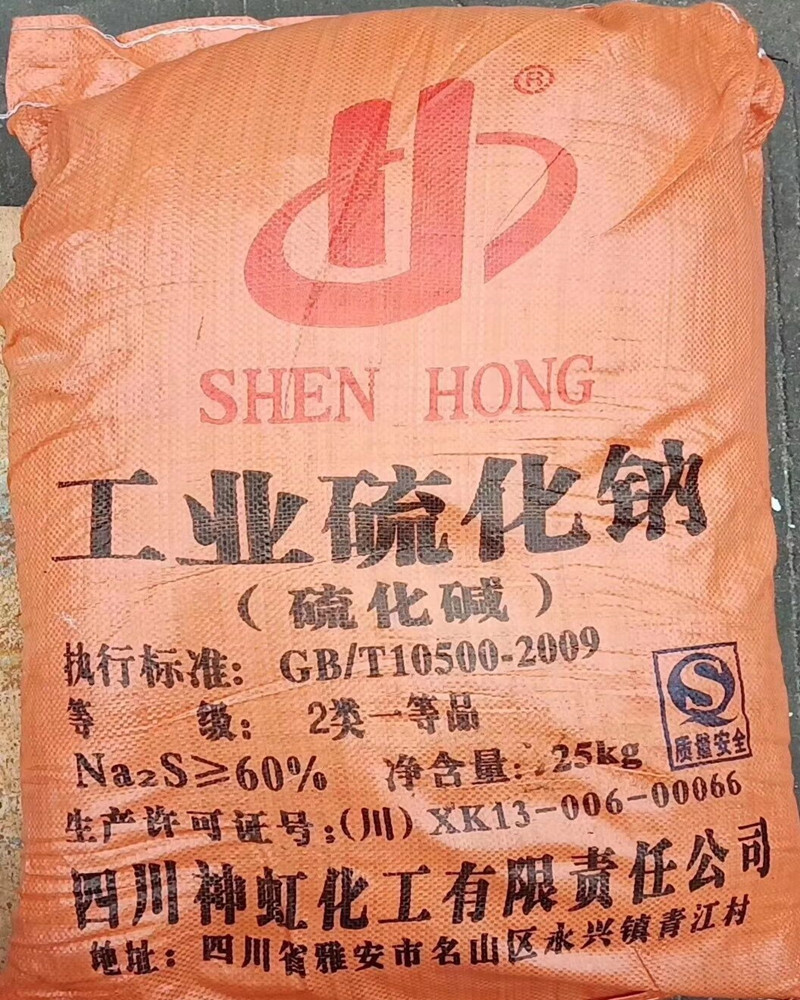 ®
SHEN HONG
工业硫化钠
（硫化碱）
执行标准：GB/T10500-2009
等 级：2类一等品
Na₂S≥60% 净含量：25kg
质量安全
生产许可证号：（川）XK13-006-00066
四川神虹化工有限责任公司
地址：四川省雅安市名山区永兴镇青江村